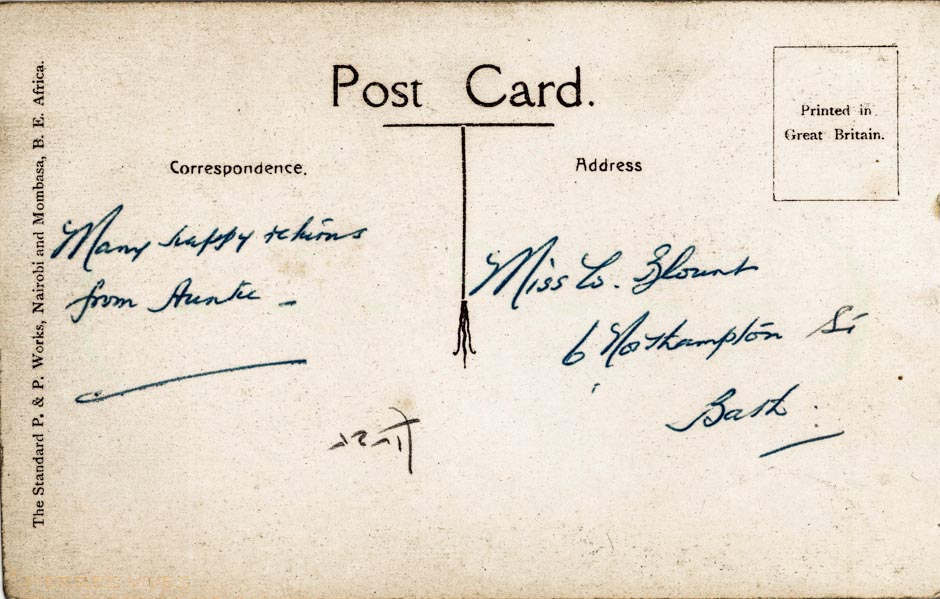 Post Card.
Printed in
Great Britain.
Correspondence.
Address
Many happy returns
from Auntie
Miss W. Blount
6 Northampton St
Bath.
The Standard P. & P. Works, Nairobi and Mombasa, B. E. Africa.